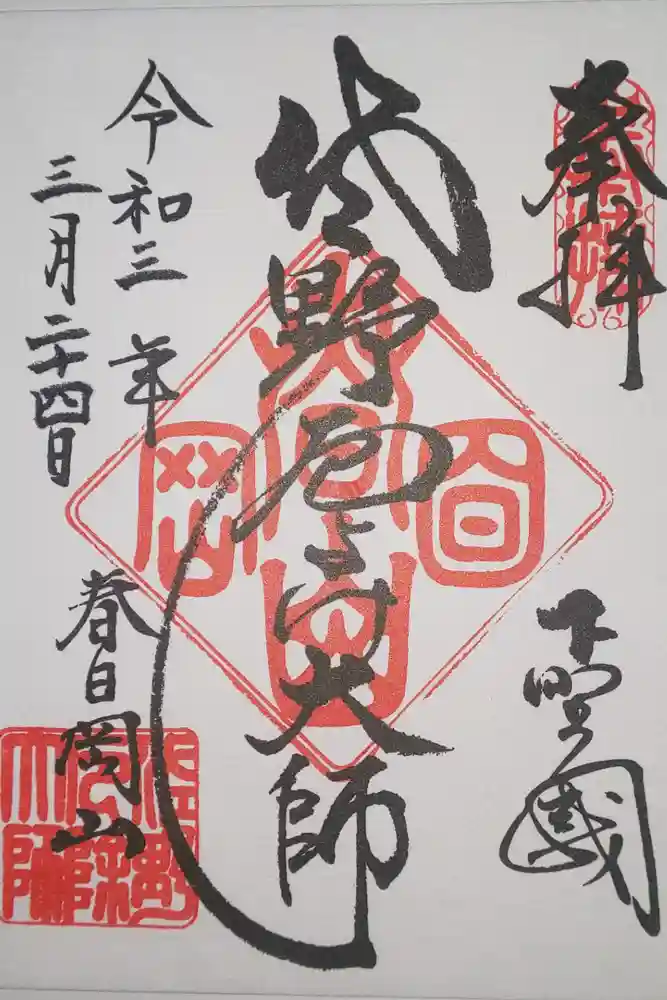 奉拝
下野國
佐野厄よけ大師
令和三年
三月二十四日
春日岡山